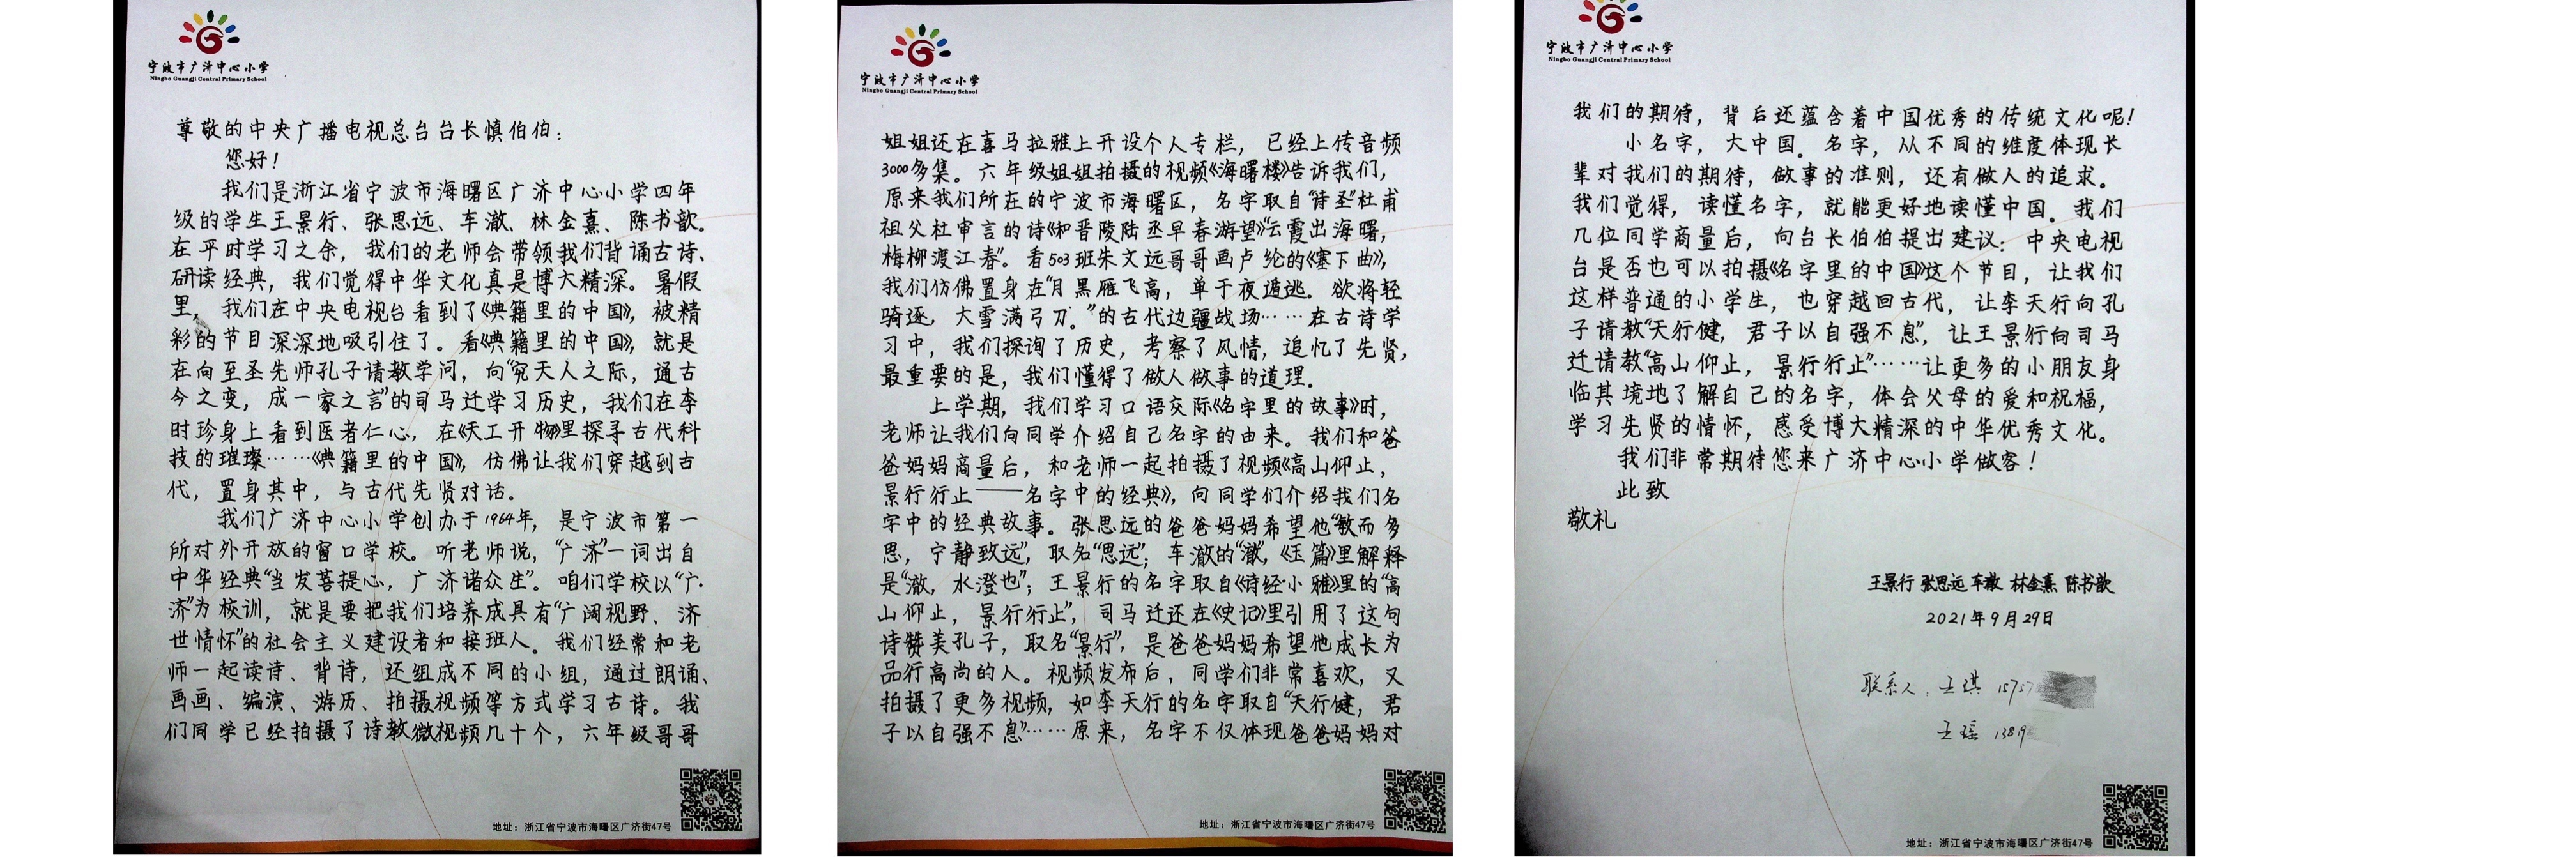 宁波市广济中心小学
Ningbo Guangji Central Primary School
尊敬的中央广播电视总台台长慎伯伯：
您好！
我们是浙江省宁波市海曙区广济中心小学四年
级的学生王景行、张思远、车澈、林金熹、陈书歆。
在平时学习之余，我们的老师会带领我们背诵古诗、
研读经典，我们觉得中华文化真是博大精深。暑假
里，我们在中央电视台看到了《典籍里的中国》，被精
彩的节目深深地吸引住了。看《典籍里的中国》，就是
在向至圣先师孔子请教学问，向“究天人之际，通古
今之变，成一家之言”的司马迁学习历史，我们在李
时珍身上看到医者仁心，在《天工开物》里探寻古代科
技的璀璨……《典籍里的中国》，仿佛让我们穿越到古
代，置身其中，与古代先贤对话。
我们广济中心小学创办于1964年，是宁波市第一
所对外开放的窗口学校。听老师说，“广济”一词出自
中华经典“当发菩提心，广济诸众生”。咱们学校以“广
济”为校训，就是要把我们培养成具有“广阔视野、济
世情怀”的社会主义建设者和接班人。我们经常和老
师一起读诗、背诗，还组成不同的小组，通过朗诵、
画画、编演、游历、拍摄视频等方式学习古诗。我
们同学已经拍摄了诗教微视频几十个，六年级哥哥
地址：浙江省宁波市海曙区广济街47号
宁波市广济中心小学
Ningbo Guangji Central Primary School
姐姐还在喜马拉雅上开设个人专栏，已经上传音频
3000多集。六年级姐姐拍摄的视频《海曙楼》告诉我们，
原来我们所在的宁波市海曙区，名字取自“诗圣”杜甫
祖父杜审言的诗《和晋陵陆丞早春游望》“云霞出海曙，
梅柳渡江春”。看503班朱文远哥哥画卢纶的《塞下曲》，
我们仿佛置身在“月黑雁飞高，单于夜遁逃。欲将轻
骑逐，大雪满弓刀。”的古代边疆战场……在古诗学
习中，我们探询了历史，考察了风情，追忆了先贤，
最重要的是，我们懂得了做人做事的道理。
上学期，我们学习口语交际《名字里的故事》时，
老师让我们向同学介绍自己名字的由来。我们和爸
爸妈妈商量后，和老师一起拍摄了视频《高山仰止，
景行行止——名字中的经典》，向同学们介绍我们名
字中的经典故事。张思远的爸爸妈妈希望他“敏而多
思，宁静致远”，取名“思远”；车澈的“澈”，《玉篇》里解释
是“澈，水澄也”；王景行的名字取自《诗经·小雅》里的“高
山仰止，景行行止”，司马迁还在《史记》里引用了这句
诗赞美孔子，取名“景行”，是爸爸妈妈希望他成长为
品行高尚的人。视频发布后，同学们非常喜欢，又
拍摄了更多视频，如李天行的名字取自“天行健，君
子以自强不息”……原来，名字不仅体现爸爸妈妈对
地址：浙江省宁波市海曙区广济街47号
宁波市广济中心小学
Ningbo Guangji Central Primary School
我们的期待，背后还蕴含着中国优秀的传统文化呢！
小名字，大中国。名字，从不同的维度体现长
辈对我们的期待，做事的准则，还有做人的追求。
我们觉得，读懂名字，就能更好地读懂中国。我们
几位同学商量后，向台长伯伯提出建议：中央电视
台是否也可以拍摄《名字里的中国》这个节目，让我们
这样普通的小学生，也穿越回古代，让李天行向孔
子请教“天行健，君子以自强不息”，让王景行向司马
迁请教“高山仰止，景行行止”……让更多的小朋友身
临其境地了解自己的名字，体会父母的爱和祝福，
学习先贤的情怀，感受博大精深的中华优秀文化。
我们非常期待您来广济中心小学做客！
此致
敬礼
王景行 张思远 车澈 林金熹 陈书歆
2021年9月29日
联系人：王琪 15757
王瑶 1389
地址：浙江省宁波市海曙区广济街47号